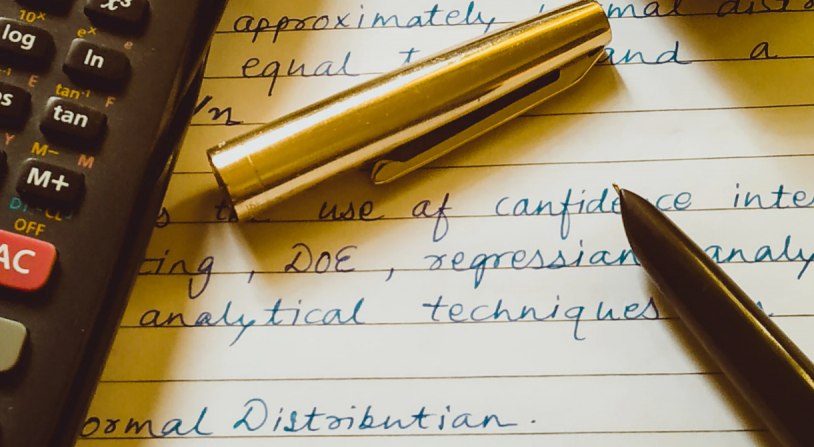 10ˣ
log
eˣ e
ln
E
tan⁻¹ F
tan
M- M
M+
OFF
AC
approximately
equal and a
/n
use of confidence
ting, DOE, regression analy
analytical techniques
ormal Distribution.